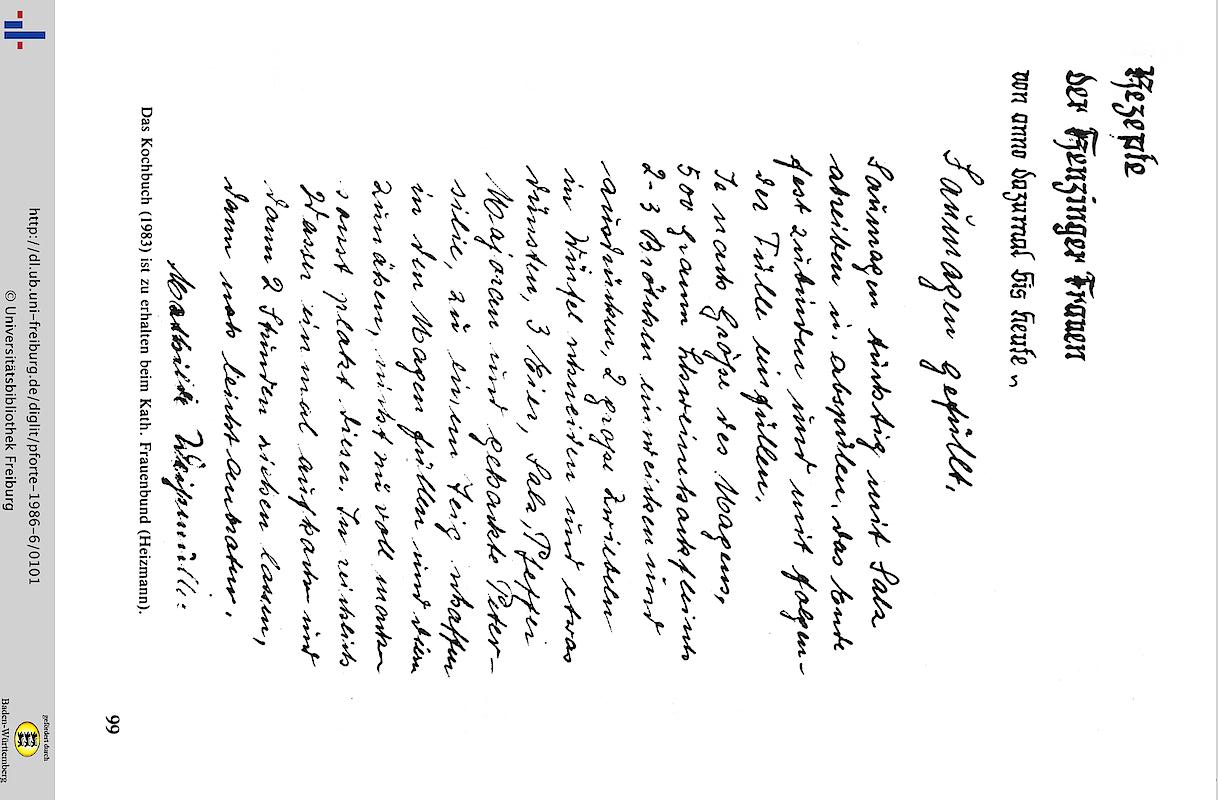 Rezepte
der Kenzinger Frauen
von anno dazumal bis heute
Saumagen gefüllt.
Saumagen tüchtig mit Salz
abreiben u. abspülen, das Ende
fest zubinden und mit folgen-
der Fülle einfüllen.
Je nach Größe des Magens,
500 Gramm Schweinehackfleisch
2-3 Brötchen einweichen und
ausdrücken, 2 große Zwiebeln
in Würfel schneiden und etwas
dünsten, 3 Eier, Salz, Pfeffer
Majoran und gehackte Peter-
silie, zu einem Teig schaffen
in den Magen füllen und dann
zunähen, nicht zu voll machen
sonst platzt dieser. In reichlich
Wasser einmal aufkochen und
dann 2 Stunden ziehen lassen,
dann noch leicht anbraten.
Mathilde
Das Kochbuch (1983) ist zu erhalten beim Kath. Frauenbund (Heizmann).
99
http://dl.ub.uni-freiburg.de/diglit/pforte-1986-6/0101
© Universitätsbibliothek Freiburg
gefördert durch
Baden-Württemberg